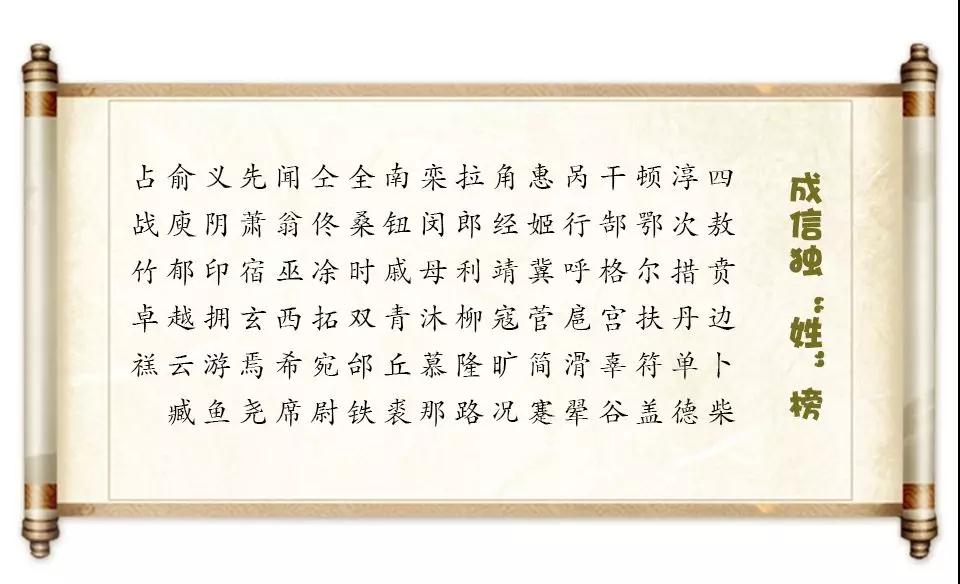 成信独“姓”榜
四敖贲边卜柴
淳次措丹单德
顿鄂尔扶符盖
干郜格宫辜谷
呙行呼扈滑翚
惠姬冀菅简蹇
角经靖寇旷况
拉郎利柳隆路
栾闵母沐慕那
南钮戚青丘裘
全桑时双邰铁
仝佟凃拓宛尉
闻翁巫西希席
先萧宿玄焉尧
义阴印拥游鱼
俞庾郁越云臧
占战竹卓禚